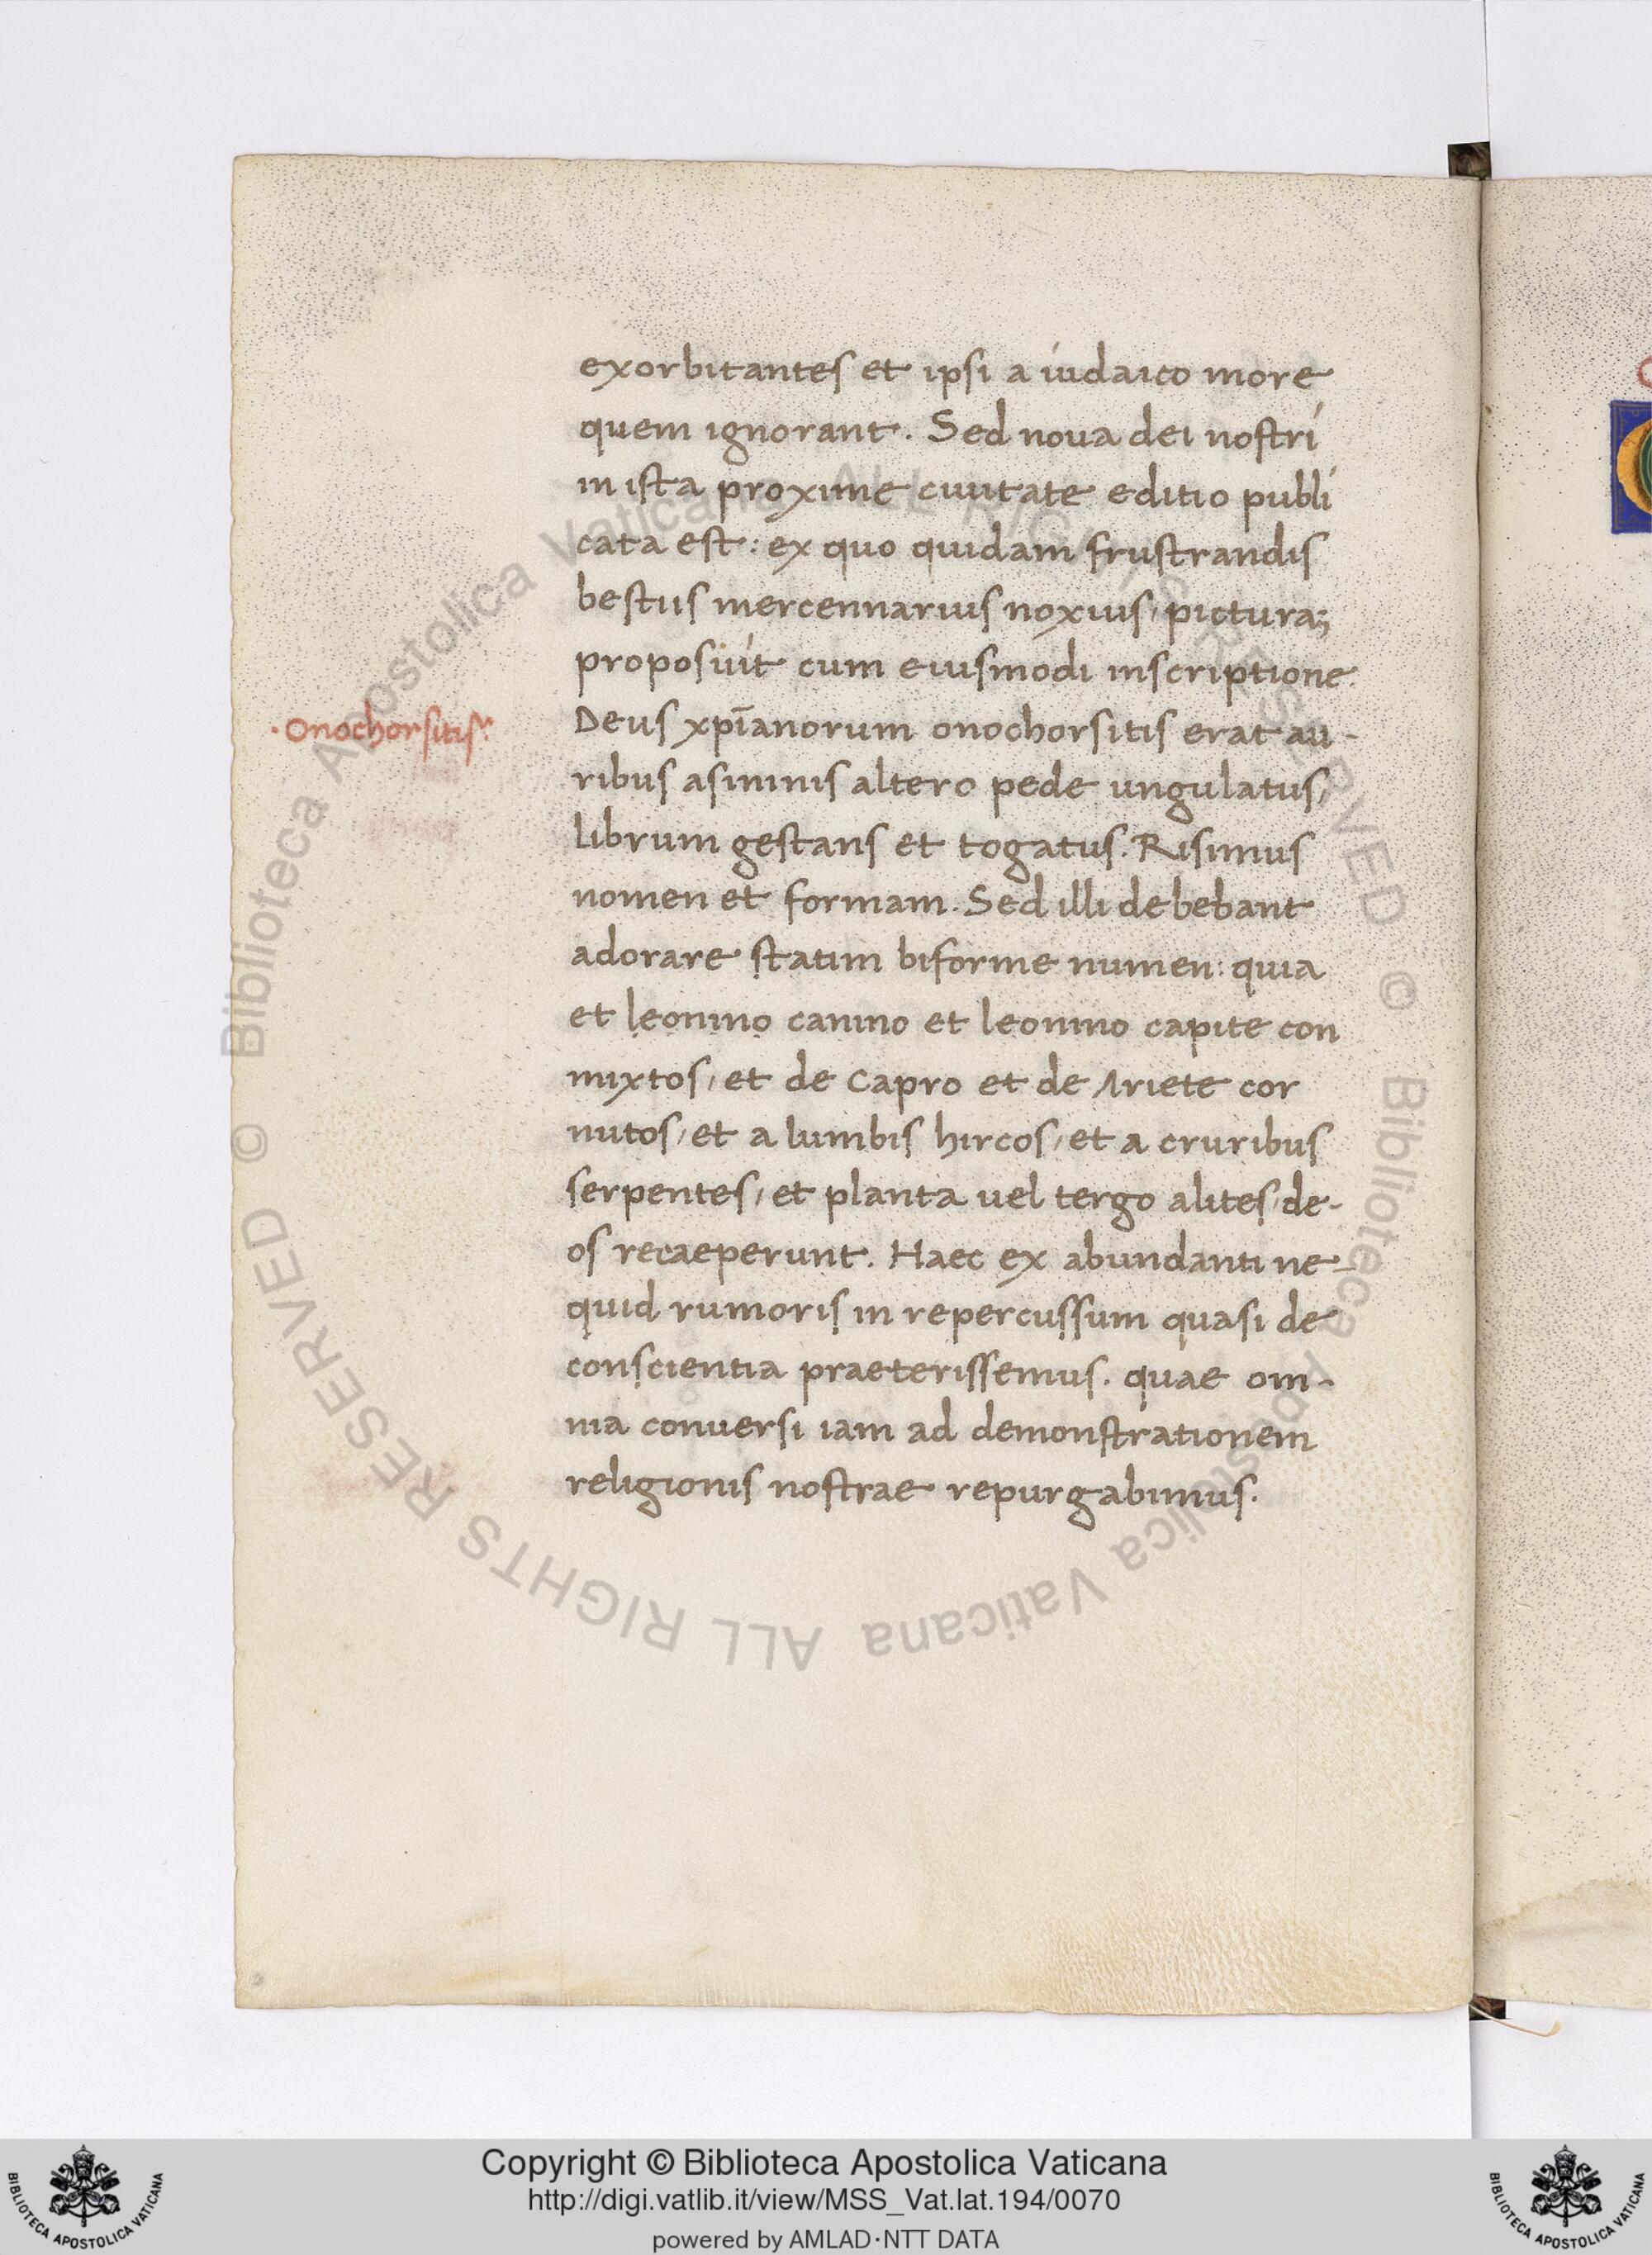 exorbitantes et ipsi a iudaico more
quem ignorant. Sed noua dei nostri
in ista proxime ciuitate editio publi
cata est: ex quo quidam frustrandis
bestiis mercennarius noxius, pictura;
proposuit cum eiusmodi inscriptione.
·Onochorsitis·
Deus xp̄ianorum onochorsitis erat au-
ribus asininis altero pede ungulatus,
librum gestans et togatus. Risimus
nomen et formam. Sed illi debebant
adorare statim biforme numen: quia
et leonino canino et leonino capite con
mixtos, et de Capro et de Ariete cor
nutos, et a lumbis hircos, et a cruribus
serpentes, et planta uel tergo alites, de-
os recaeperunt. Haec ex abundanti ne-
quid rumoris in repercussum quasi de
conscientia praeterissemus. quae om-
nia conuersi iam ad demonstrationem
religionis nostrae repurgabimus.
© Biblioteca Apostolica Vaticana ALL RIGHTS RESERVED © Biblioteca Apostolica Vaticana ALL RIGHTS RESERVED
Copyright © Biblioteca Apostolica Vaticana
http://digi.vatlib.it/view/MSS_Vat.lat.194/0070
powered by AMLAD·NTT DATA
BIBLIOTECA APOSTOLICA VATICANA
BIBLIOTECA APOSTOLICA VATICANA